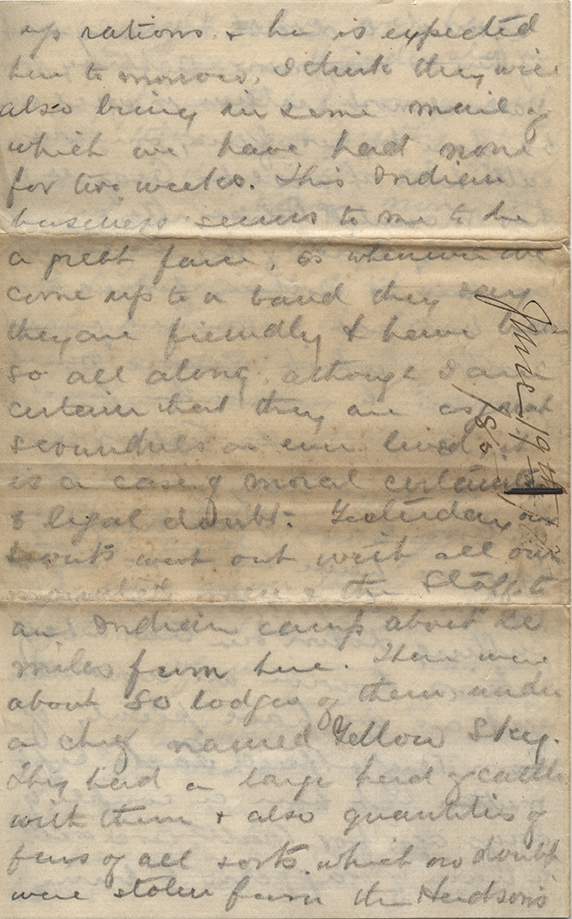 up rations. & he is expected
here to morrow. I think they will
also bring in some mail of
which we have had none
for two weeks. This Indian
business seems to me to be
a great farce, as whenever we
come up to a band they say
they are friendly & have been
so all along, although I am
certain that they are as great
scoundrels as ever lived, it
is a case of moral certainty
& legal doubt. Yesterday our
scouts went out with all our
mounted men & the Staff to
an Indian camp about
miles from here. There were
about 50 lodges of them under
a chief named Yellow Sky.
They had a large herd of cattle
with them & also quantities of
furs of all sorts. which no doubt
were stolen from the Hudson's
June 19th